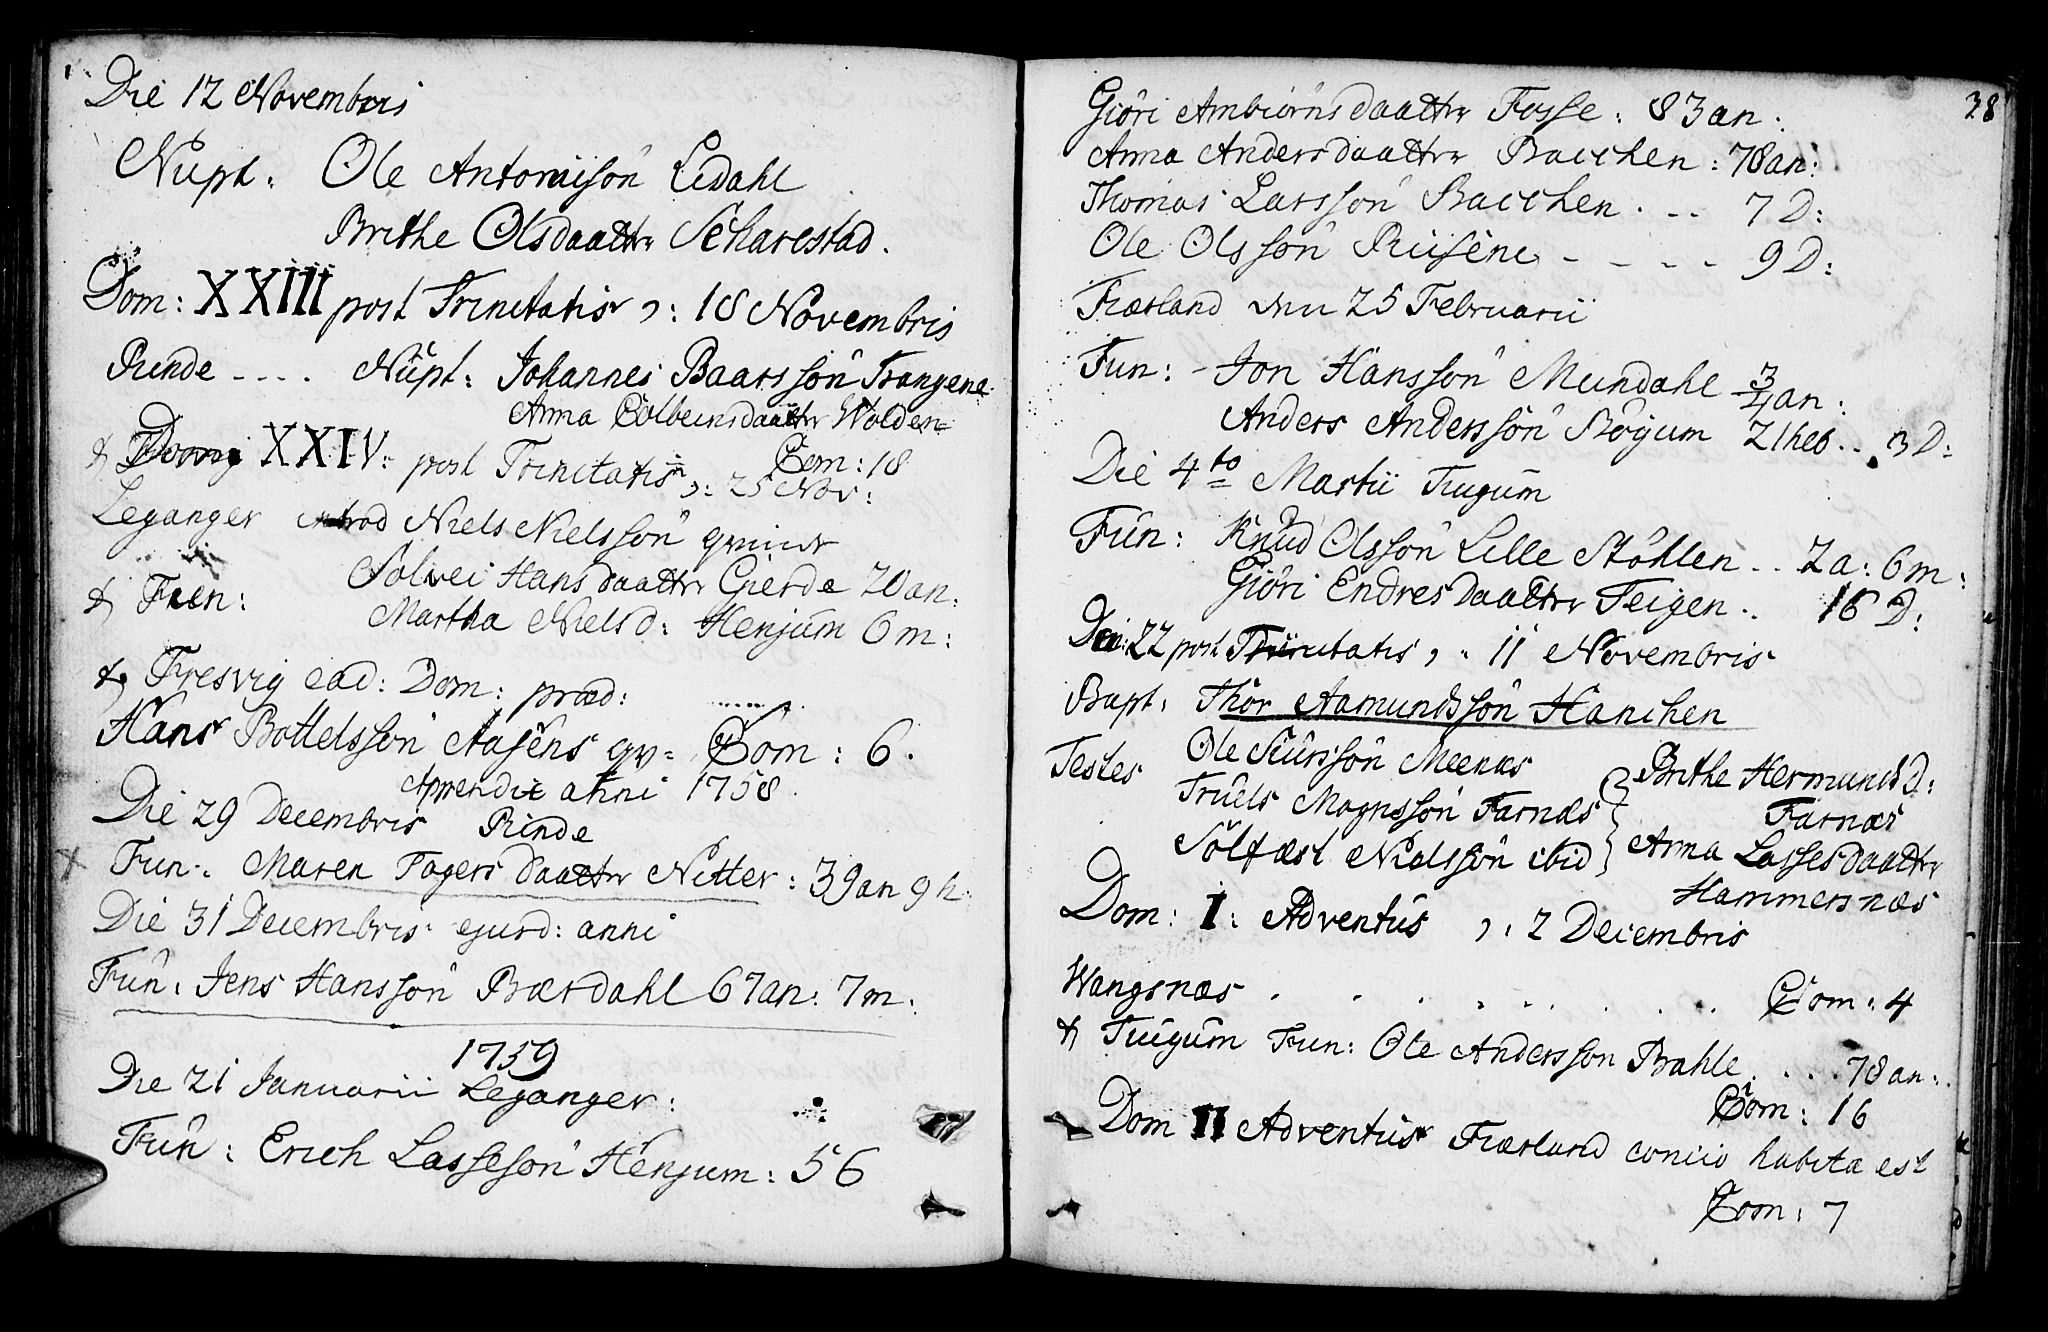 Die 12 Novembris
Nupt. Ole Antonisön Ledahl
Brithe Olsdaatter Scharestad.
Dom: XXIII post Trinitatis, : 18 Novembris
Rinde - - - . Nupt: Johannes Baarssön Trongene
Anna Colbeinsdaatter Wolden
Com: 18
& Dom XXIV: post Trinitatis, : 25 Nov:
Leganger introd Niels Nielssön qvinde
& Fun: Solvei Hansdaatter Gierde 20 an:
Martha Niels D: Henjum 6 m:
& Fresvig ead: Dom: præd:
Hans Bottelssön Aasens qv= Com: 6.
Appendix anni 1758.
Die 29 Decembris Rinde
Fun: Maren Fogers daatter Nitter: 39 an 9 h
Die 31 Decembris ejusd: anni
Fun: Jens Hanssön Bærdahl 67 an: 7 m:
1759
Die 21 Januarii Leganger:
Fun: Erich Lassesön Henjum: 56
38
Giöri Ambiörnsdaatter Fosse: 83 an:
Anna Andersdaatter Bacchen: 78 an:
Thomas Larssön Bacchen . - - 7 D:
Ole Olssön Rusene - - - - - 9 D:
Fiærland den 25 Februarii
Fun: - Jon Hanssön Mundahl 3/4 an:
Anders Anderssön Bögum 21 heb . . 3 D:
Die 4to Martii Tugum
Fun: Knud Olssön Lille Stöhlen . . 2 a: 6 m:
Giöri Endresdaatter Feigen . . 16 D:
Dom: 22 post Trinitatis, : 11 Novembris
Bapt: Thor Aamundssön Hanchen
Testes Ole Siurssön Meenæs
Truels Mognssön Farnæs
Sölfæst Nielssön ibid
Brithe Hermunds D:
Farnæs
Anna Lassesdaatter
Hammersnæs
Dom: I: Adventus , : 2 Decembris
Wangsnæs . . . . . . . . Com: 4
& Tugum Fun: Ole Anderssön Bahle . . . . 78 an:.
Com: 16
Dom II Adventus Fiærland concio habita est
Com: 7